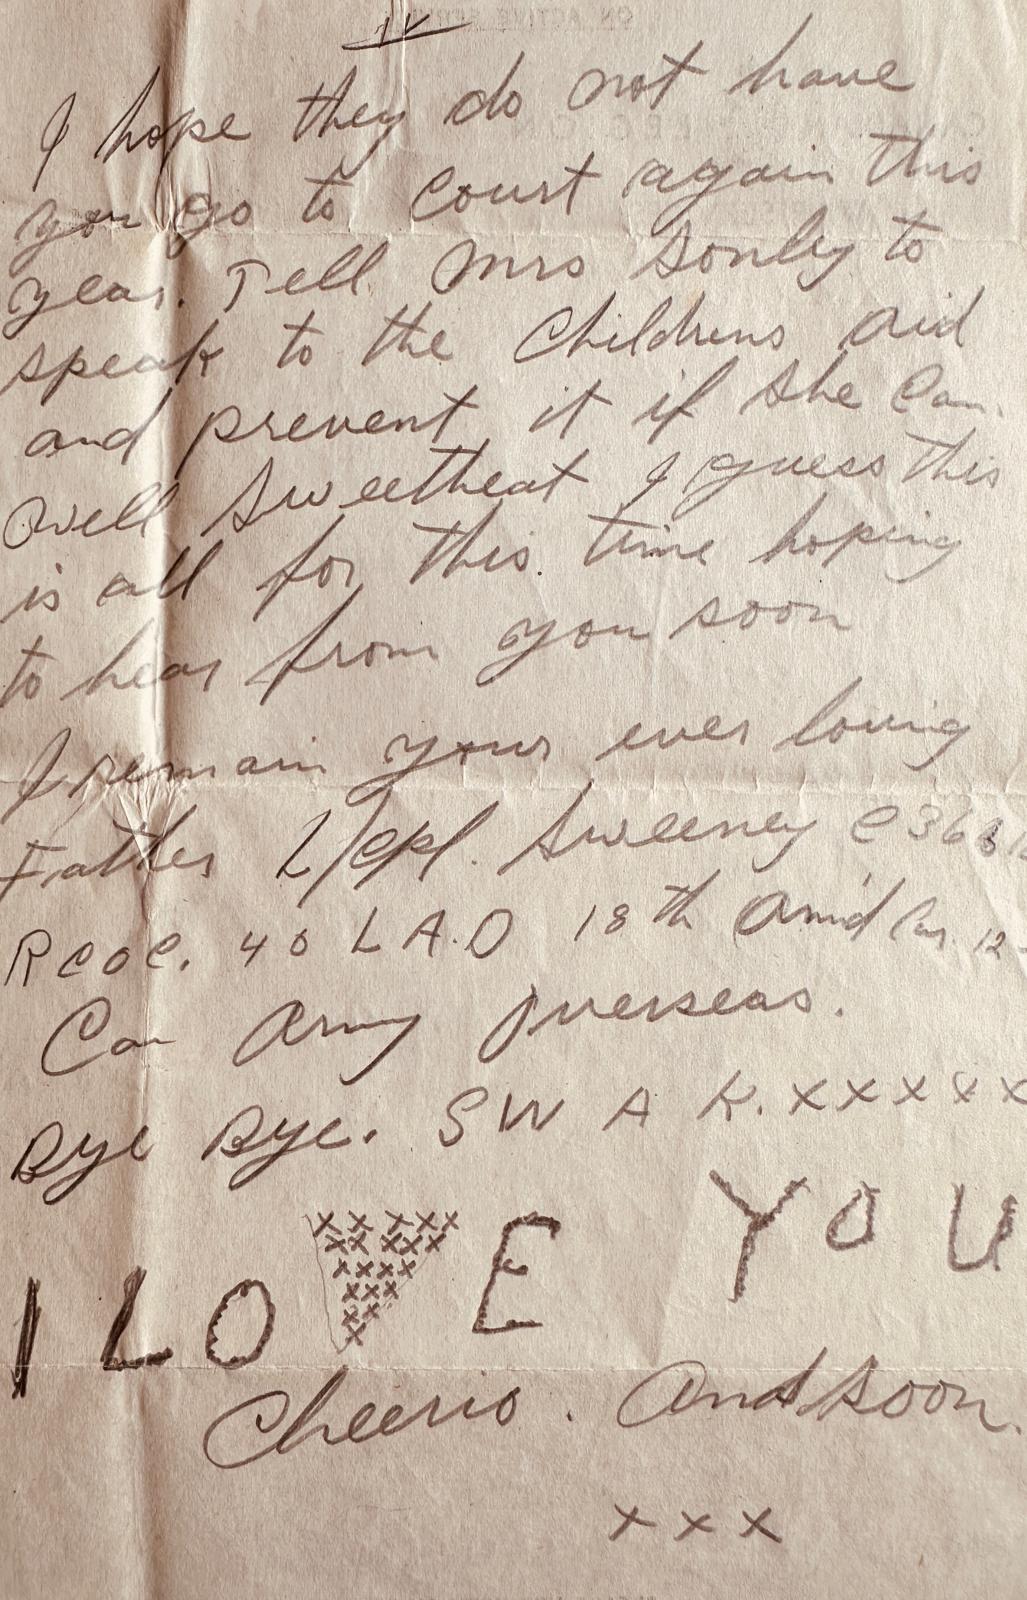 IV
I hope they do not have
you go to court again this
year. Tell Mrs Sonley to
speak to the Childrens aid
and prevent it if she Can.
Well Sweetheat I guess this
is all for this time hoping
to hear from you soon
I remain your ever loving
Father L/Cpl. Sweeney
RCOC. 40 L.A.D 18th Arm'd Car. 12
Can Army Overseas.
Bye Bye. S W A K. x x x x x
I L O V E Y O U
x x x x x
x x x x x
x x x x
x x x
x x
x
Cheerio. And Soon.
x x x